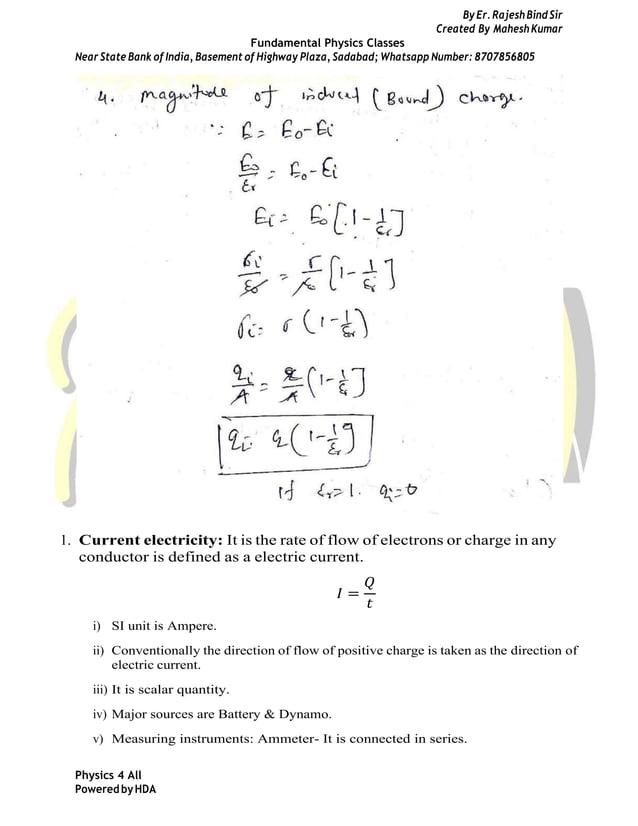 By Er. Rajesh Bind Sir
Created By Mahesh Kumar
Fundamental Physics Classes
Near State Bank of India, Basement of Highway Plaza, Sadabad; Whatsapp Number: 8707856805
4. magnitude of induced (Bound) charge.
∵ E = E₀ - Ei
E₀/εr = E₀ - Ei
Ei = E₀ [1 - 1/εr]
σi/ε₀ = σ/ε₀ [1 - 1/εr]
σi = σ (1 - 1/εr)
qi/A = q/A (1 - 1/εr]
qi = q (1 - 1/εr]
if εr = 1. qi = 0
1. Current electricity: It is the rate of flow of electrons or charge in any
conductor is defined as a electric current.
I = Q/t
i) SI unit is Ampere.
ii) Conventionally the direction of flow of positive charge is taken as the direction of
electric current.
iii) It is scalar quantity.
iv) Major sources are Battery & Dynamo.
v) Measuring instruments: Ammeter- It is connected in series.
Physics 4 All
Powered by HDA